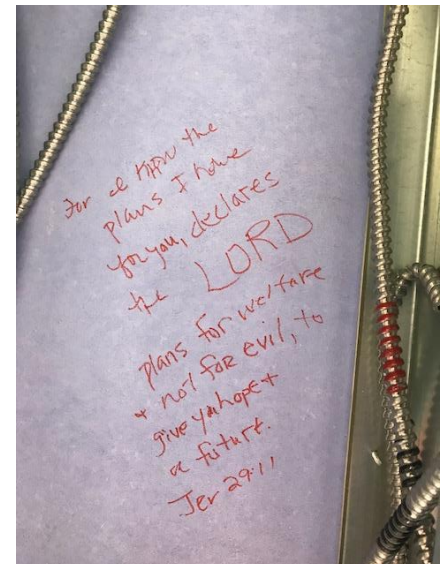 For I know the
plans I have
for you, declares
the LORD
plans for welfare
+ not for evil, to
give you hope +
a future.
Jer 29:11